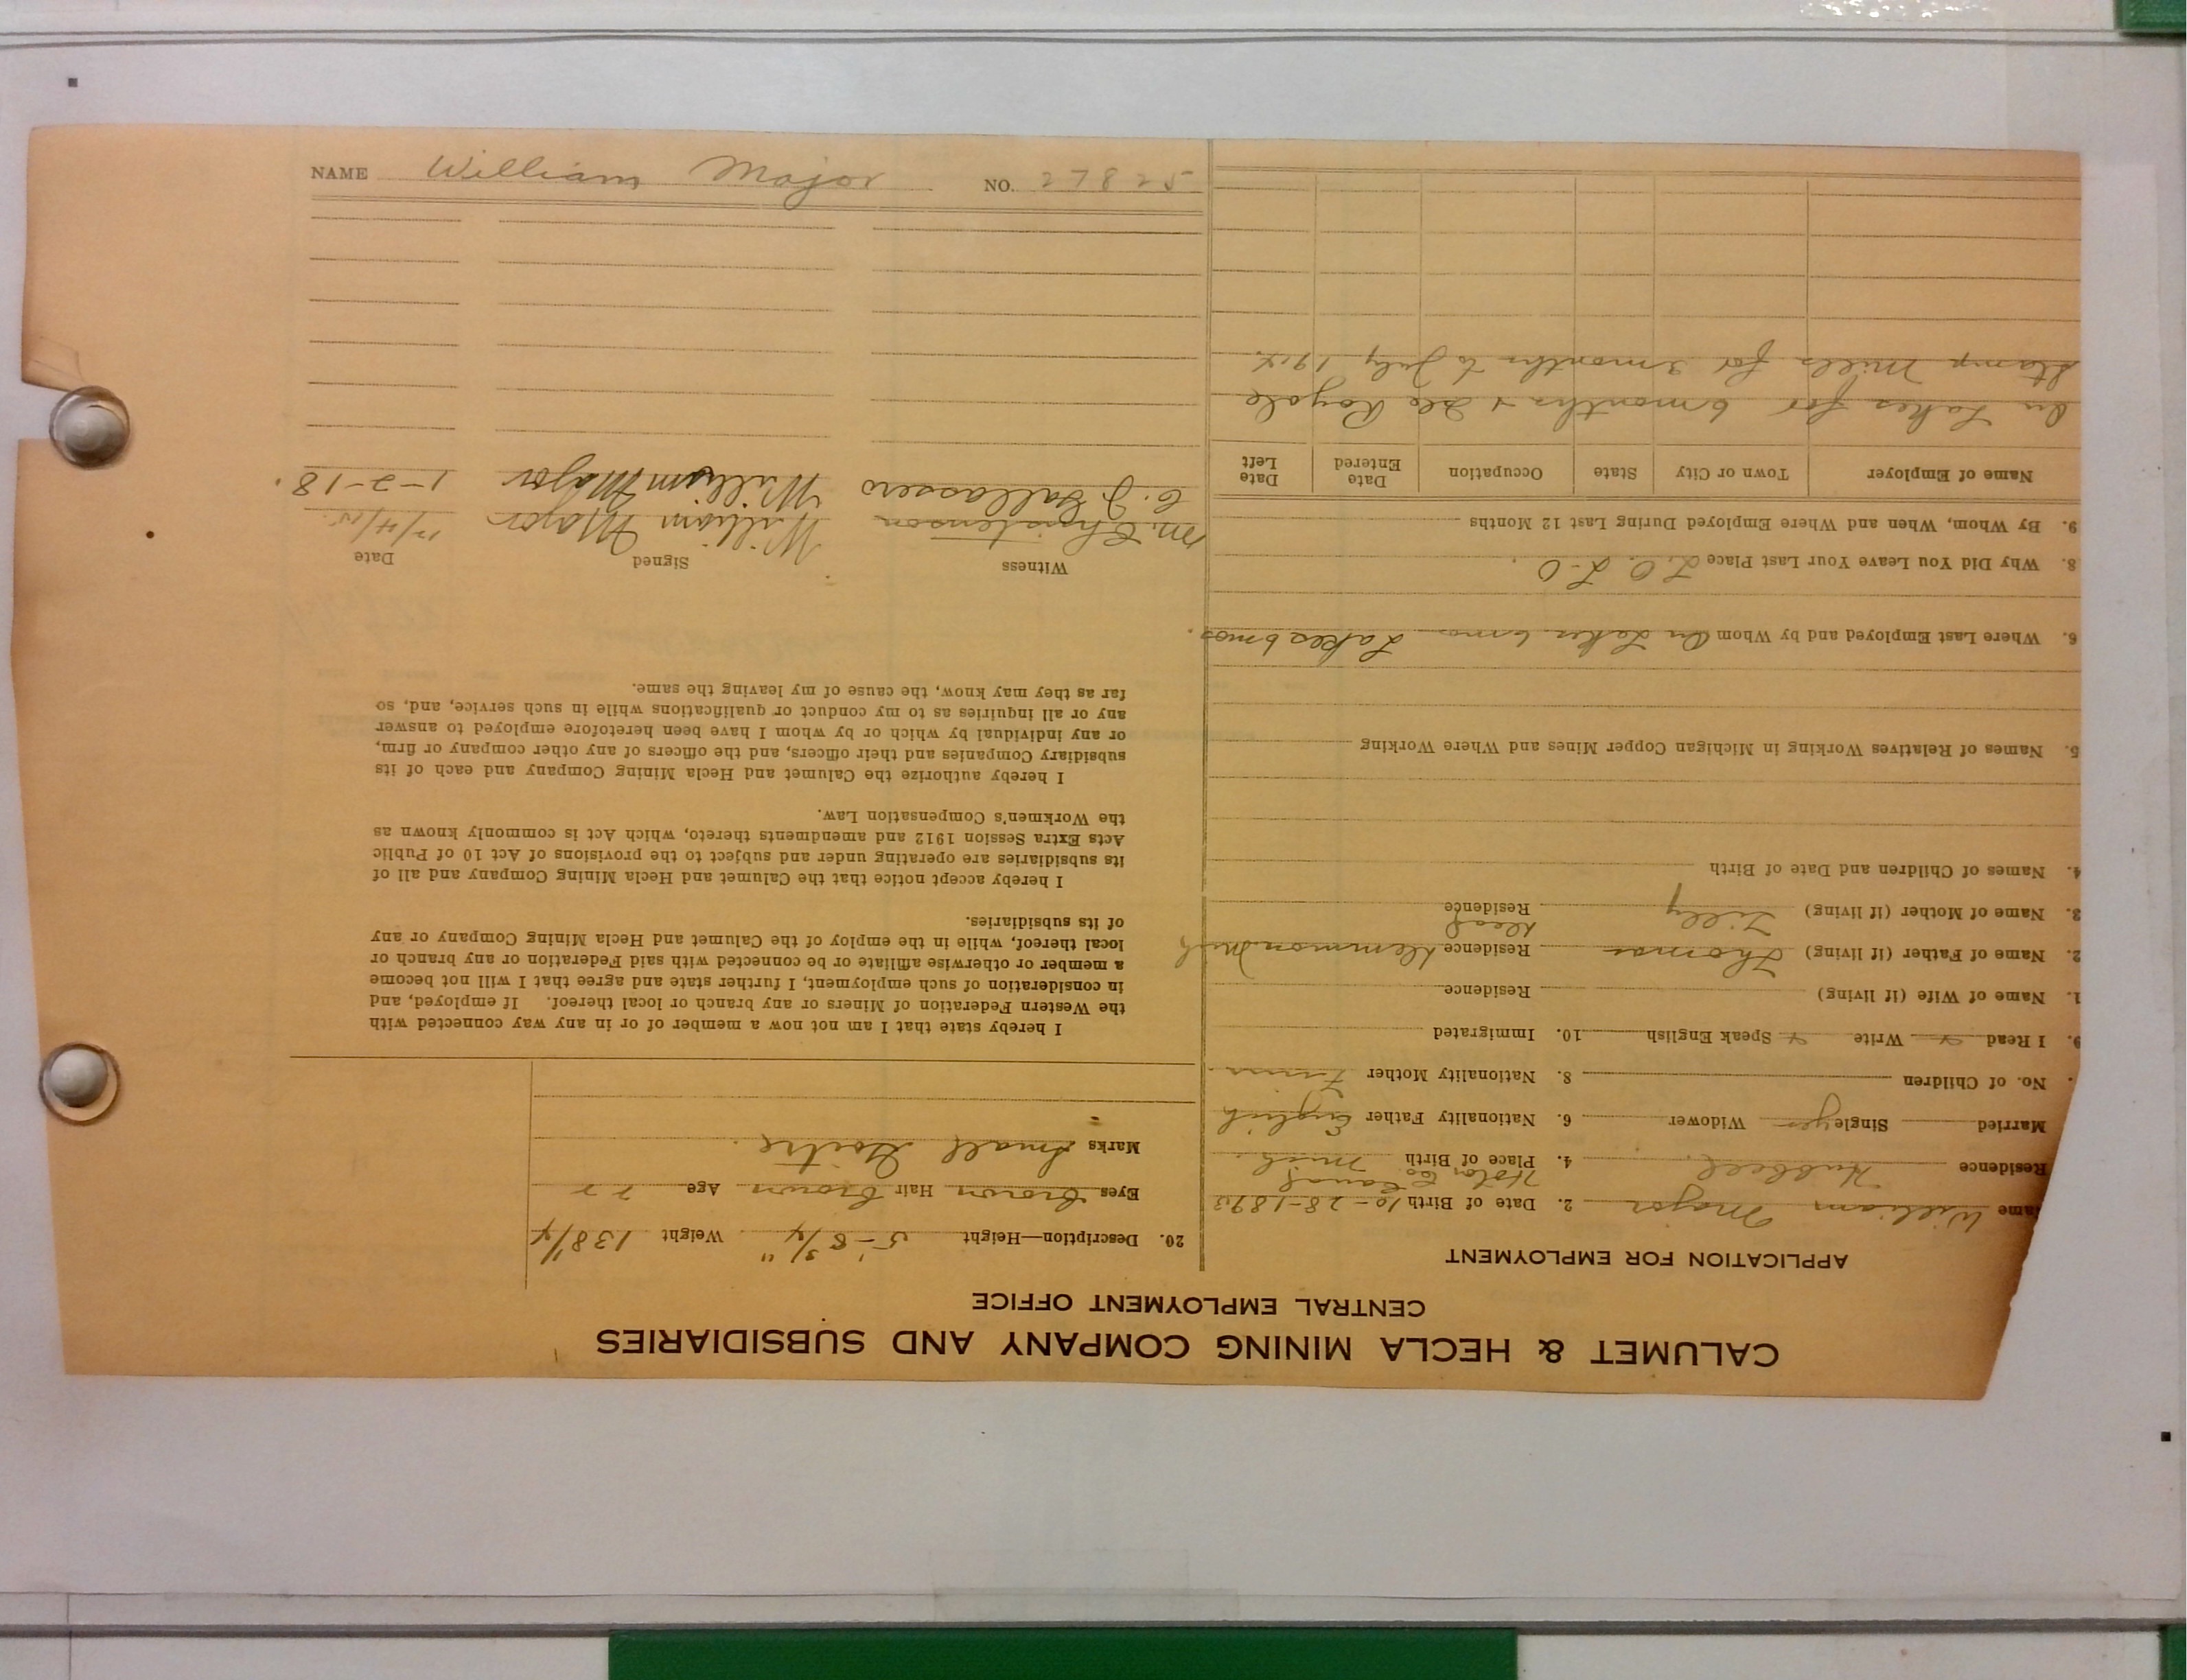 NAME William Major NO. 27825
CALUMET & HECLA MINING COMPANY AND SUBSIDIARIES
CENTRAL EMPLOYMENT OFFICE
APPLICATION FOR EMPLOYMENT
Name William Major 2. Date of Birth 10-28-1893
Residence Hubbell 4. Place of Birth Canal Mich.
Married Single yes Widower 6. Nationality Father English
No. of Children 8. Nationality Mother Finn
9. I Read Write Speak English 10. Immigrated
1. Name of Wife (if living) Residence
2. Name of Father (if living) Thomas Residence Mich
3. Name of Mother (if living) Tilly Residence Dead
4. Names of Children and Date of Birth
5. Names of Relatives Working in Michigan Copper Mines and Where Working
6. Where Last Employed and by Whom On Lakes 6 mos. Lakes 6 mos.
8. Why Did You Leave Your Last Place L.O. L-O.
9. By Whom, When and Where Employed During Last 12 Months
Name of Employer Town or City State Occupation Date Entered Date Left
On Lakes for 6 months & Isle Royale
Stamp Mills for 3 months to July
20. Description—Height 5'-8 3/4" Weight 138 1/4
Eyes brown Hair brown Age 22
Marks Small Goitre.
I hereby state that I am not now a member of or in any way connected with
the Western Federation of Miners or any branch or local thereof. If employed, and
in consideration of such employment, I further state and agree that I will not become
a member or otherwise affiliate or be connected with said Federation or any branch or
local thereof, while in the employ of the Calumet and Hecla Mining Company or any
of its subsidiaries.
I hereby accept notice that the Calumet and Hecla Mining Company and all of
its subsidiaries are operating under and subject to the provisions of Act 10 of Public
Acts Extra Session 1912 and amendments thereto, which Act is commonly known as
the Workmen's Compensation Law.
I hereby authorize the Calumet and Hecla Mining Company and each of its
subsidiary Companies and their officers, and the officers of any other company or firm,
or any individual by which or by whom I have been heretofore employed to answer
any or all inquiries as to my conduct or qualifications while in such service, and, so
far as they may know, the cause of my leaving the same.
Witness Signed Date
M. Christenson William Major 12/4/15.
C. J. William Major 1-2-18.